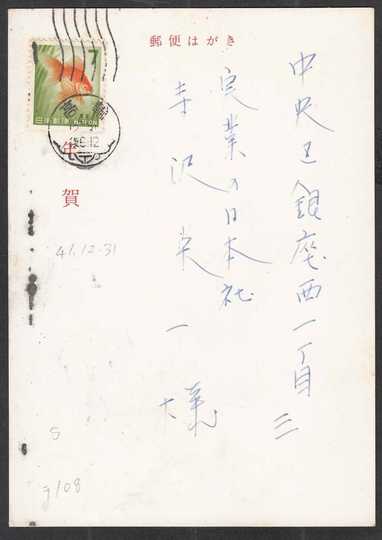 郵便はがき
7
日本郵便 NIPPON
年賀
中央区銀座西一丁目三
実業の日本社
寺沢栄一様
41.12.31
S
108